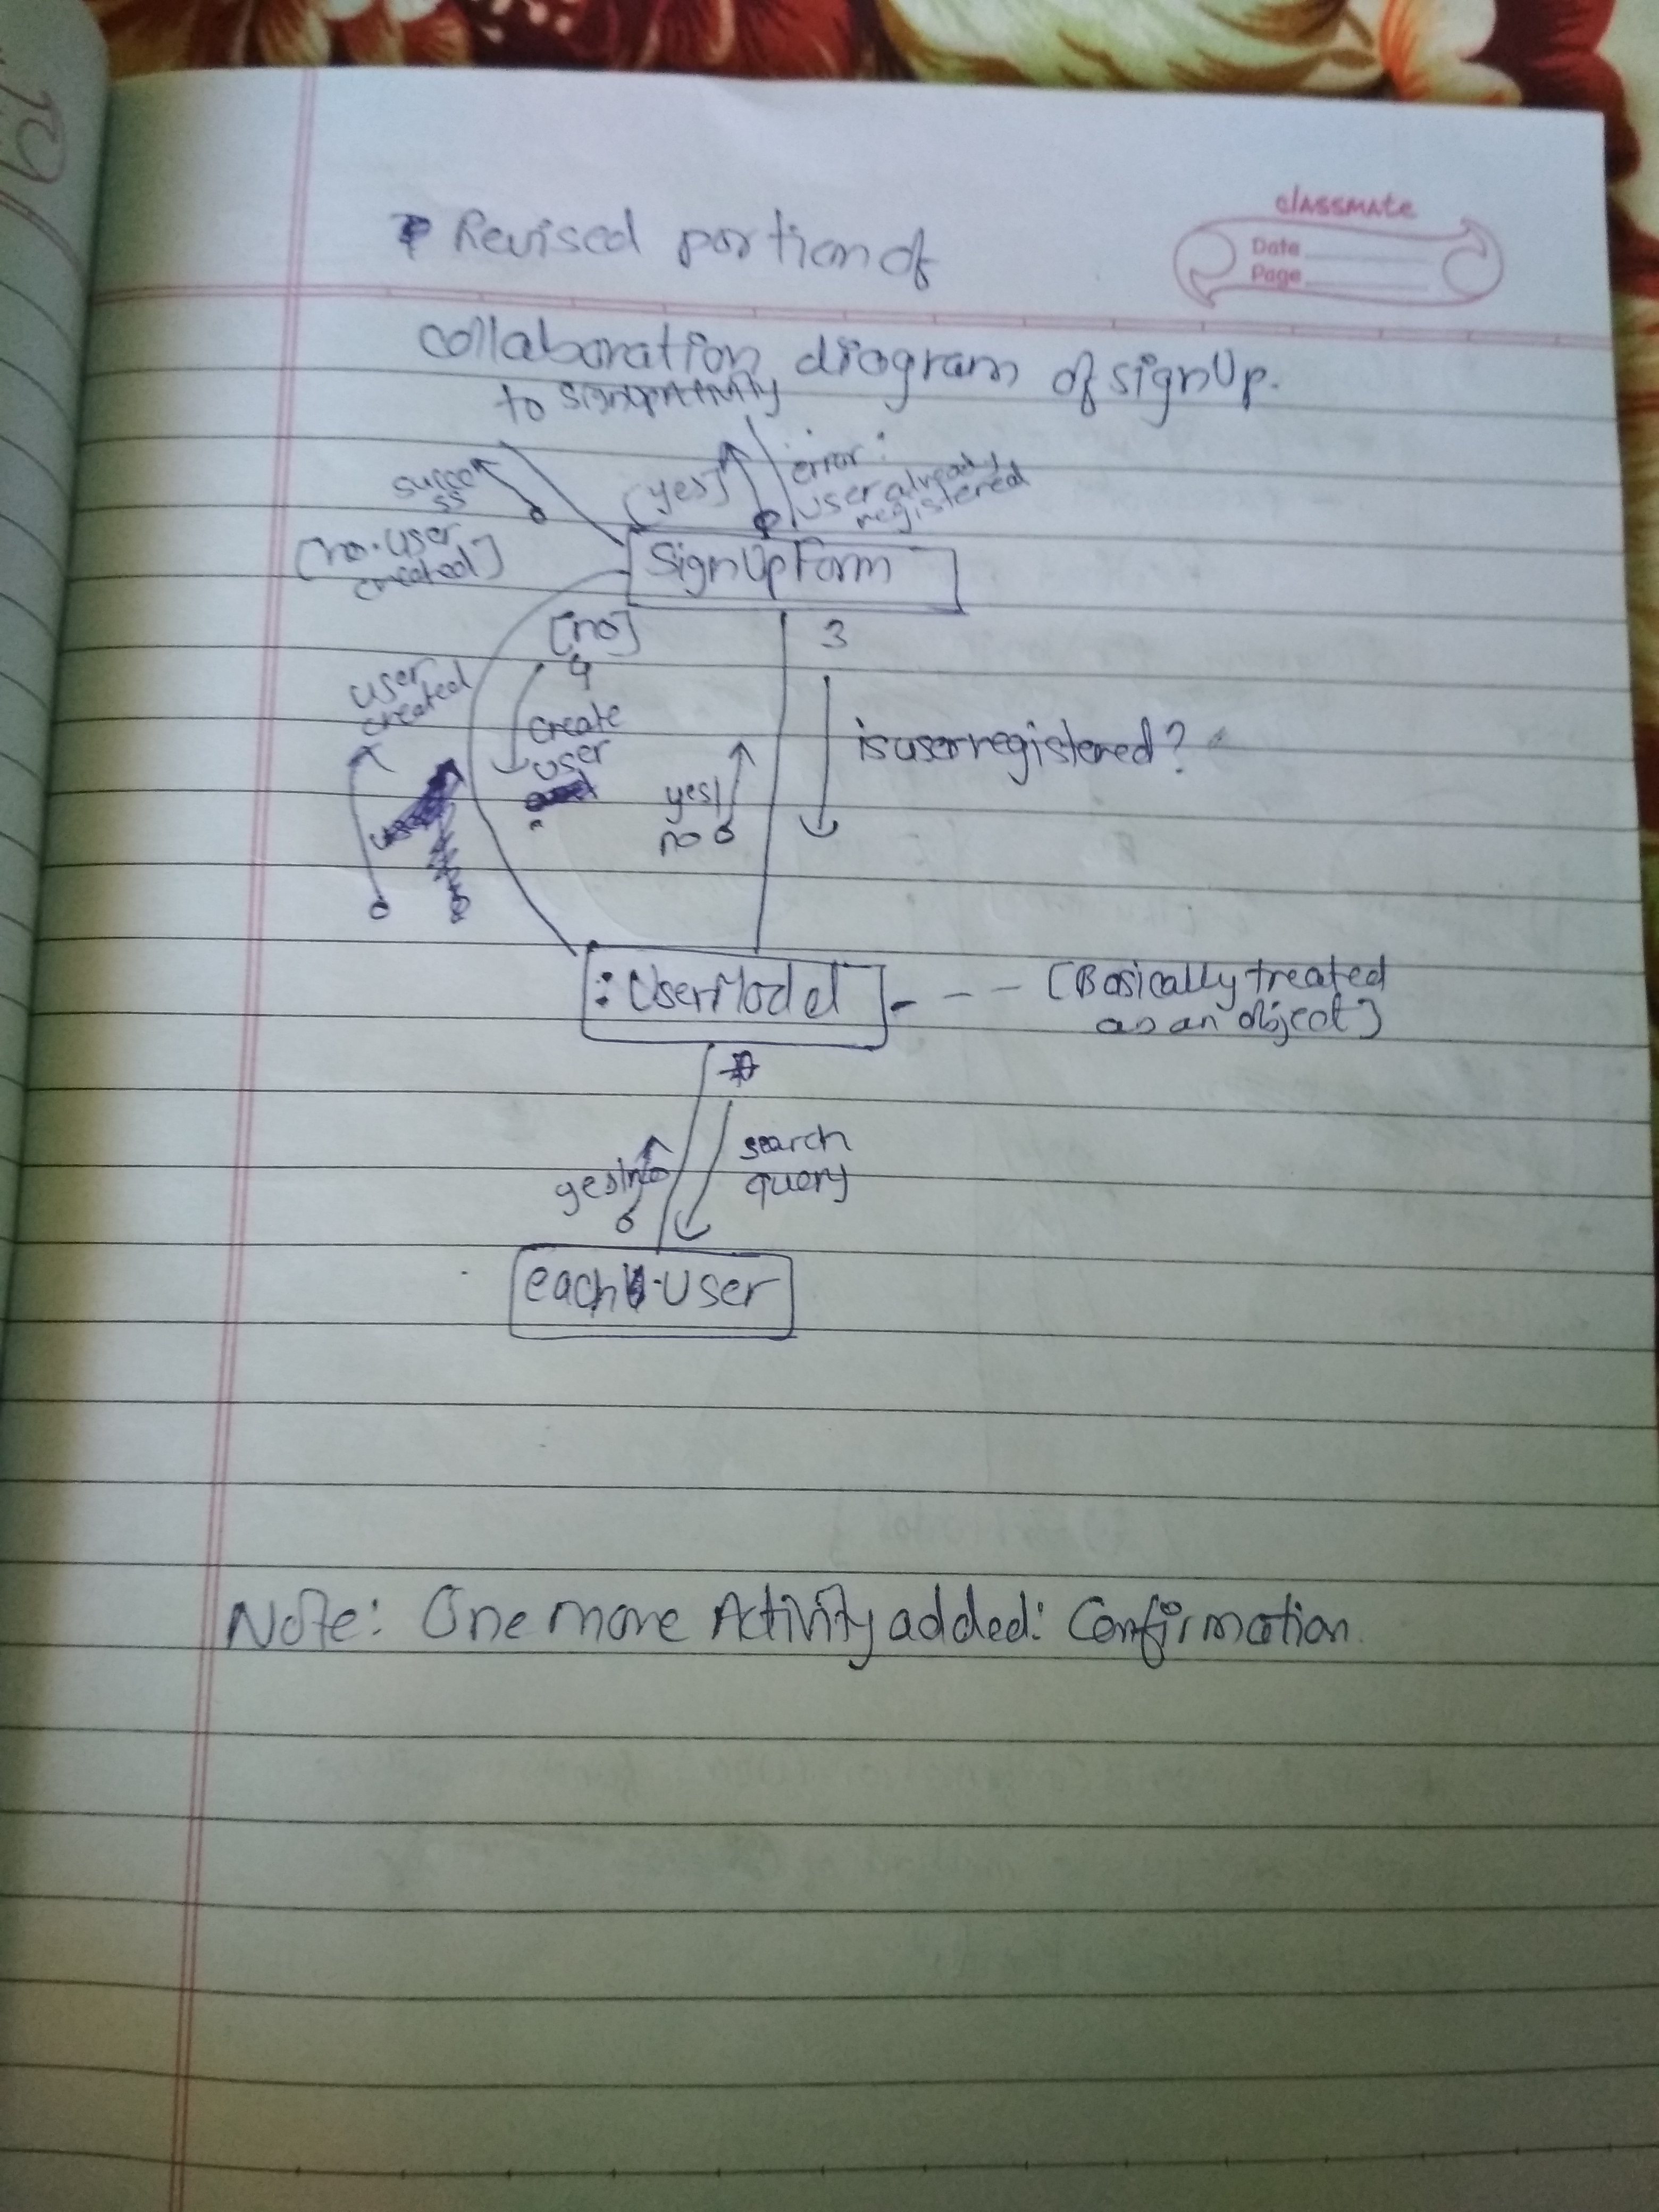 classmate
Date
Page
Revised portion of
collaboration diagram of signUp.
to signupActivity
succe
ss
[yes]
error:
user already
registered
[no. user
created]
SignUpForm
[no]
3
4
user
created
create
user
isuserregistered?
yes/
no
:UserModel
[Basically treated
as an object]
search
query
yes/no
each
User
Note: One more Activity added: Confirmation.